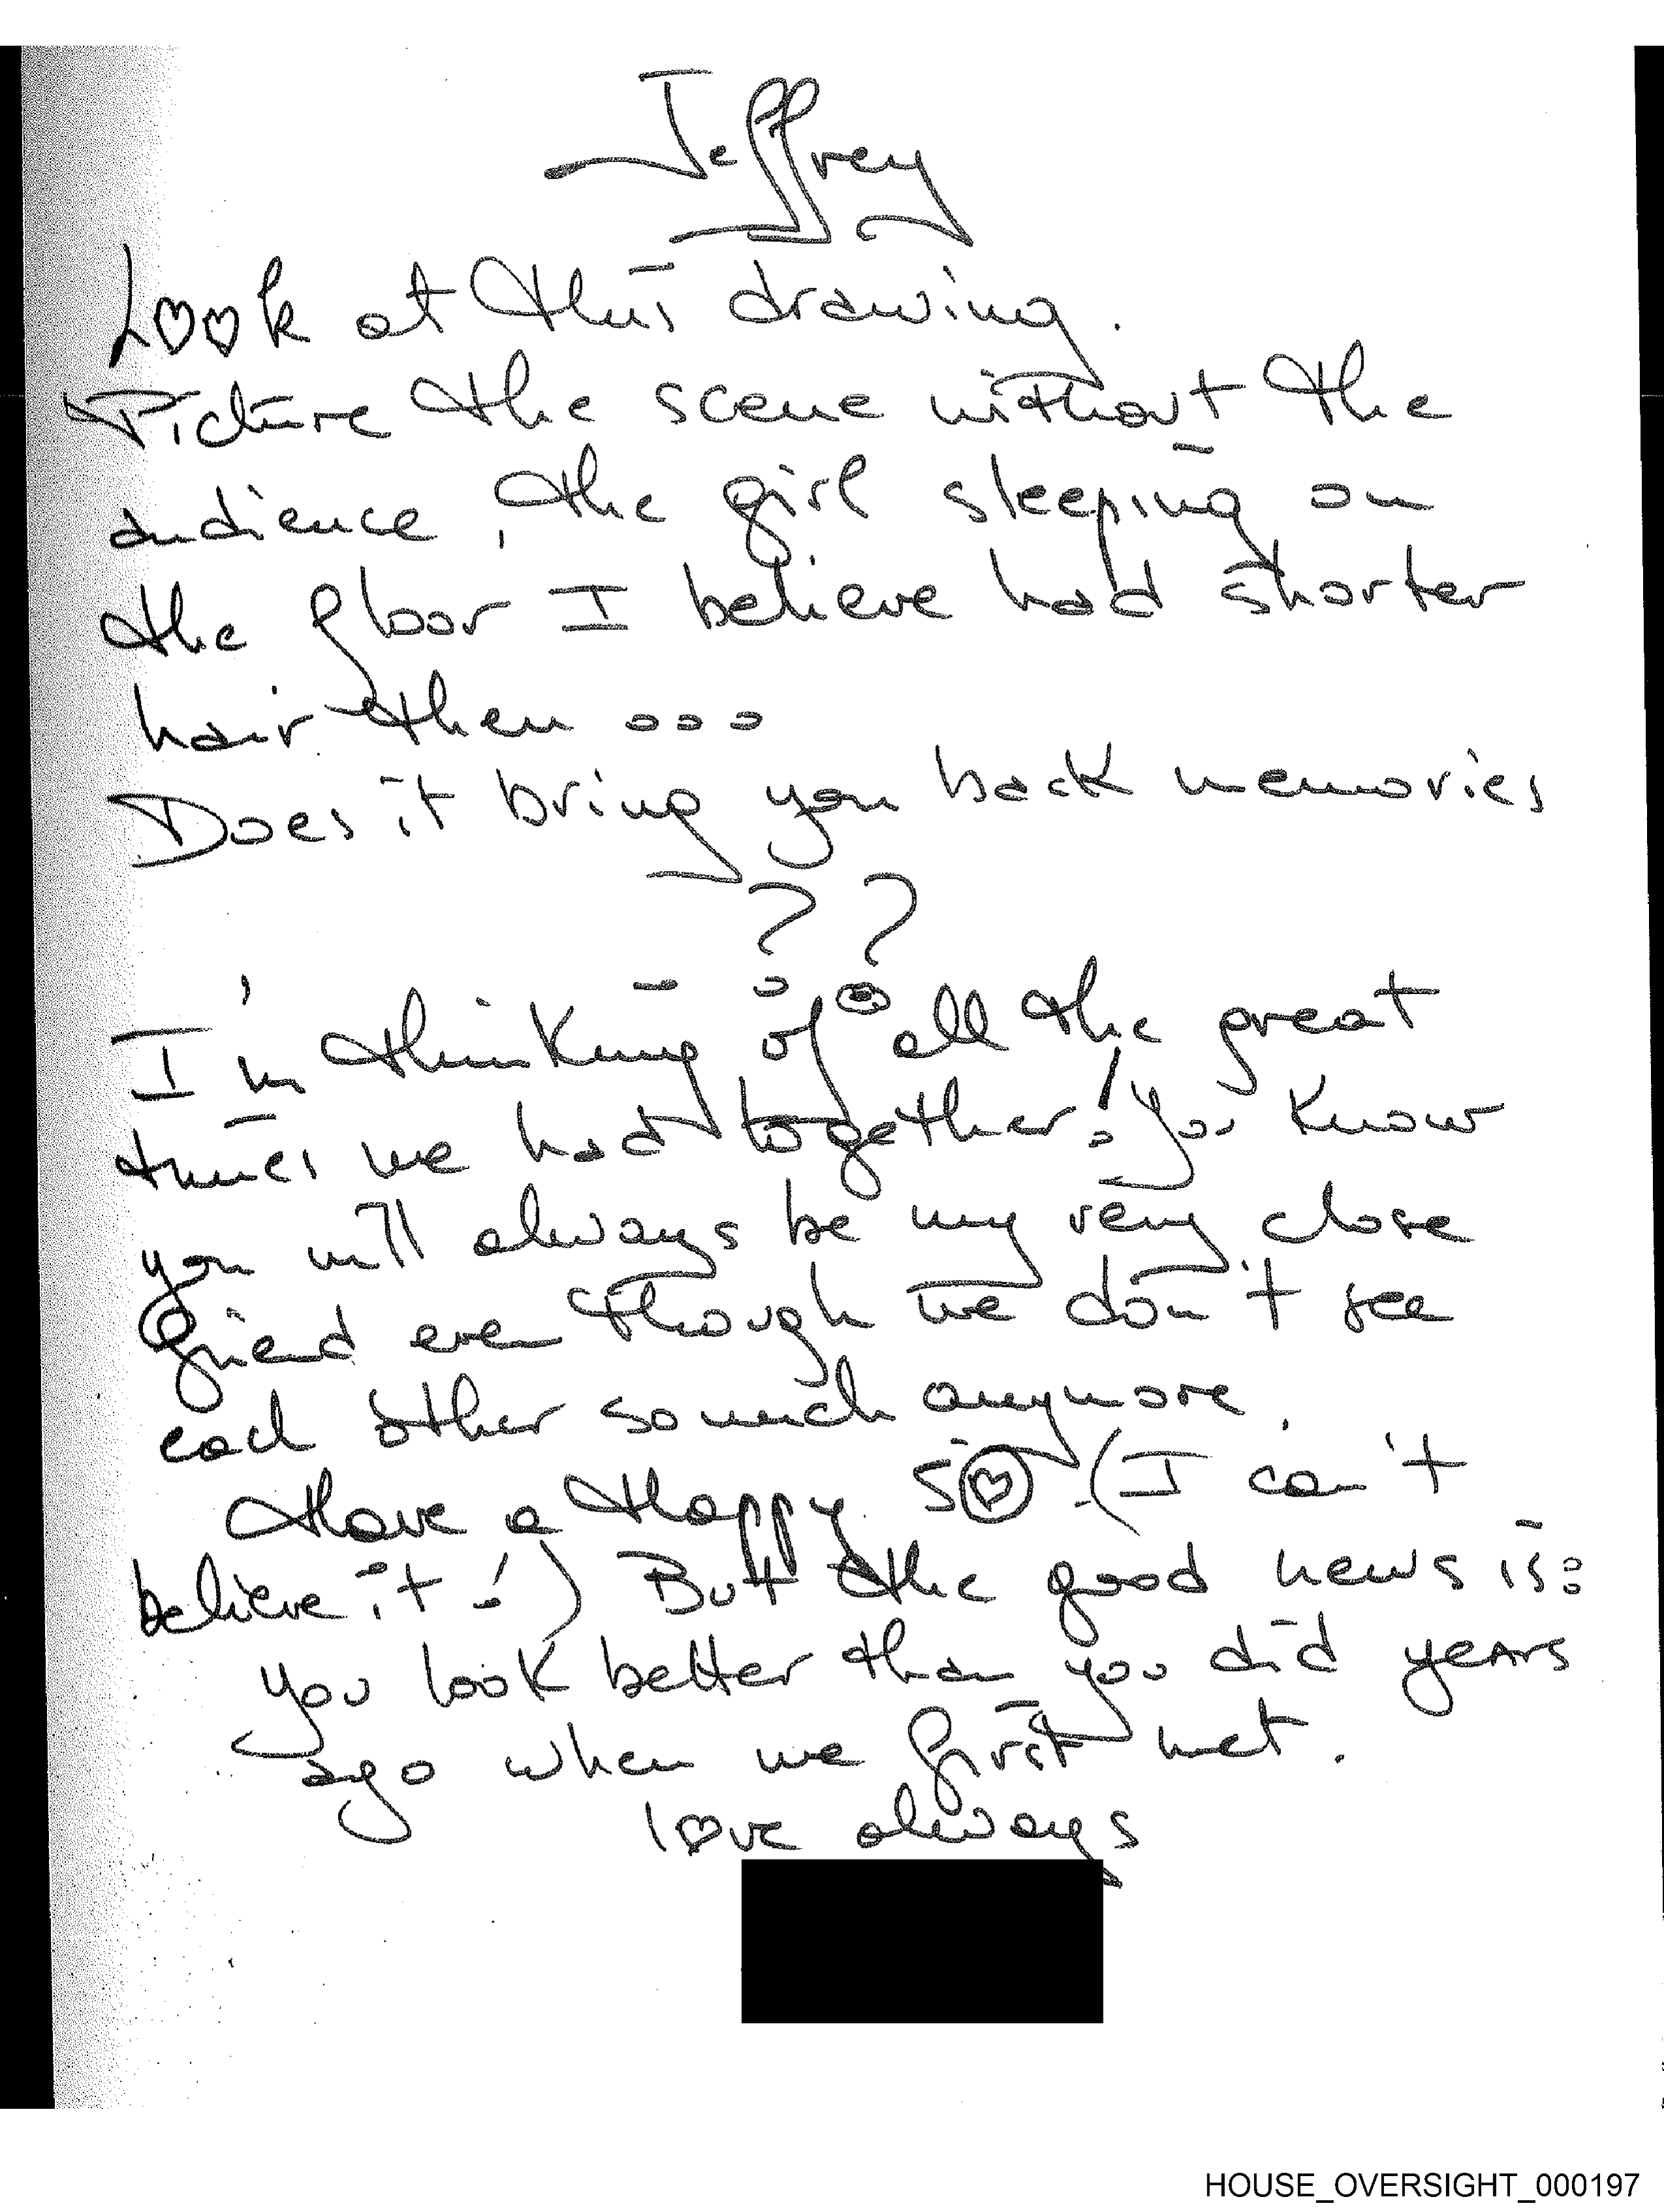 Jeffrey
Look at this drawing.
Picture the scene without the
audience, the girl sleeping on
the floor I believe had shorter
hair then ...
Does it bring you back memories
??
I'm thinking of all the great
times we had together! You know
you will always be my very close
friend even though we don't see
each other so much anymore.
Have a Happy 50. (I can't
believe it!) But the good news is:
you look better than you did years
ago when we first met.
love always
HOUSE_OVERSIGHT_000197